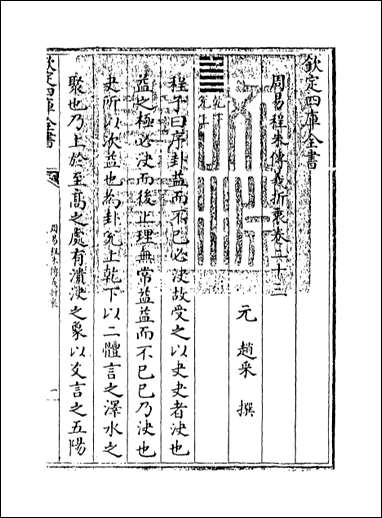 欽定四庫全書
周易程朱傳義折衷卷二十三
元 趙采 撰
乾下
兌上
程子曰序卦益而不已必決故受之以夬夬者決也
益之極必決而後止理無常益益而不已已乃決也
夬所以次益也為卦兌上乾下以二體言之澤水之
聚也乃上於至高之處有潰決之象以爻言之五陽
欽定四庫全書
周易程朱傳義折衷
一